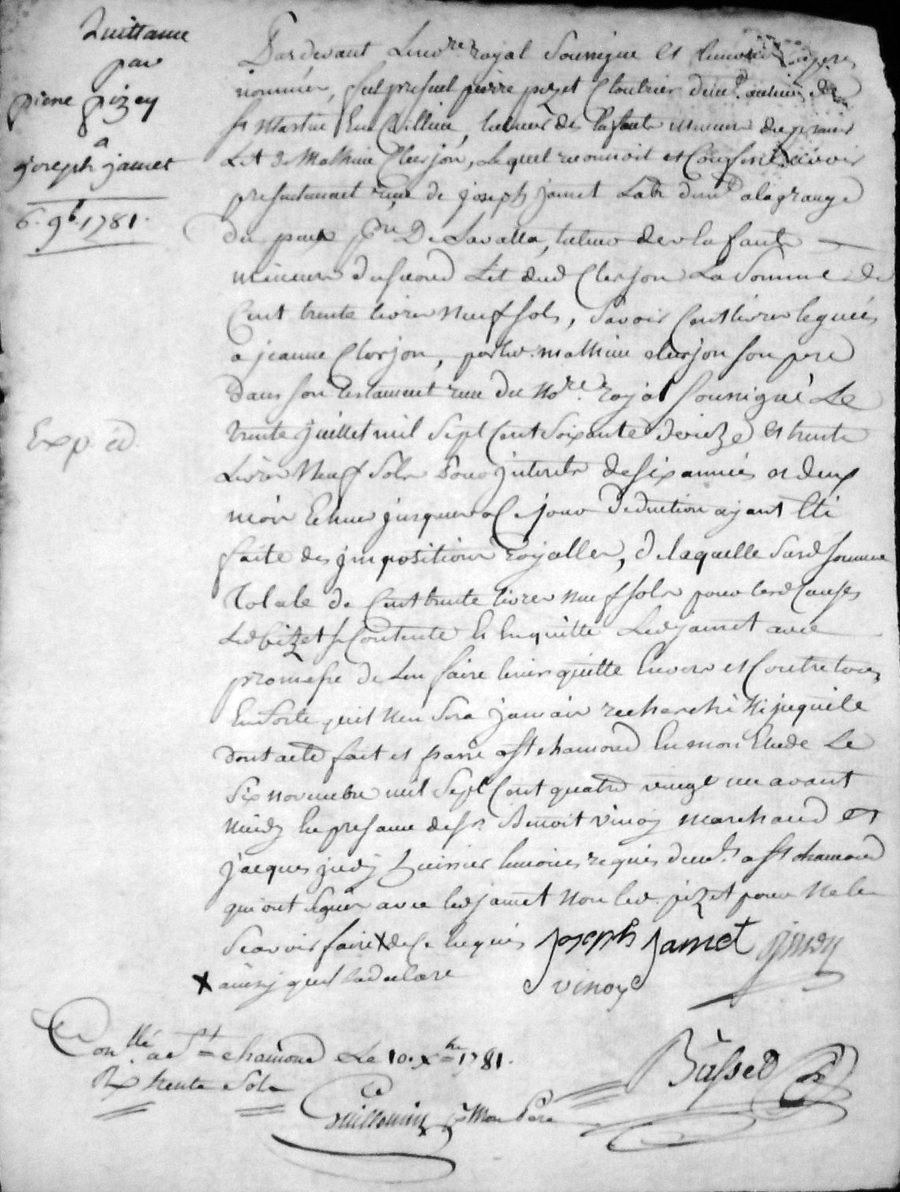 Quittance
par
pierre pizey
a
joseph jamet
6. 9b. 1781.
Exp. éd.
Pardevant Le no.re royal Soussigné et temoins
nommés, fut present pierre pizet Cloutier dem.t au lieu de
St Martin En Coillieu, tuteur des Enfants mineurs du premier
Lit de Mathieu Clerjon, Lequel reconnoit et Confesse avoir
presentement reçu de joseph jamet Lab.r dem.t a la grange
du p Parr De Lavalla, tuteur des Enfants
mineurs du second Lit dud Clerjon La Somme de
Cent trente livres Neuf sols, Savoir Cent livres leguées
a jeanne Clerjon, par led. mathieu clerjon son pere
dans son testament reçu du No.re royal soussigné Le
trente juillet mil Sept Cent soixante et trente
Livres Neuf Sols pour jnterets de six années et deux
mois Echus jusques a Ce jour deduction ayant Eté
faite des jmpositions royalles, de laquelle Susd somme
totale de Cent trente livres neuf sols pour lesd Causes
Led bizet se Contente Et En quitte Led jamet avec
promesse de L'en faire tenir quitte Envers et Contre tous
En sorte qu'il N'en sera jamais recherché Ni jnquiété
dont acte fait et passé a St chamond En mon Etude Le
six novembre mil Sept Cent quatre vingt un avant
midy En presence de s.r Benoit vinoy marchand et
jacques huissier temoins requis dem.ts a St chamond
qui ont signé avec led jamet Non led. pizet pour Ne le
Scavoir faire X de Ce requis
X ainsy qu'il l'a declaré
joseph jamet
vinoy
Con.llé a St chamond Le 10. Xbre 1781.
Rx trente Sols
Guillomin p.r Mon Pere
Basset